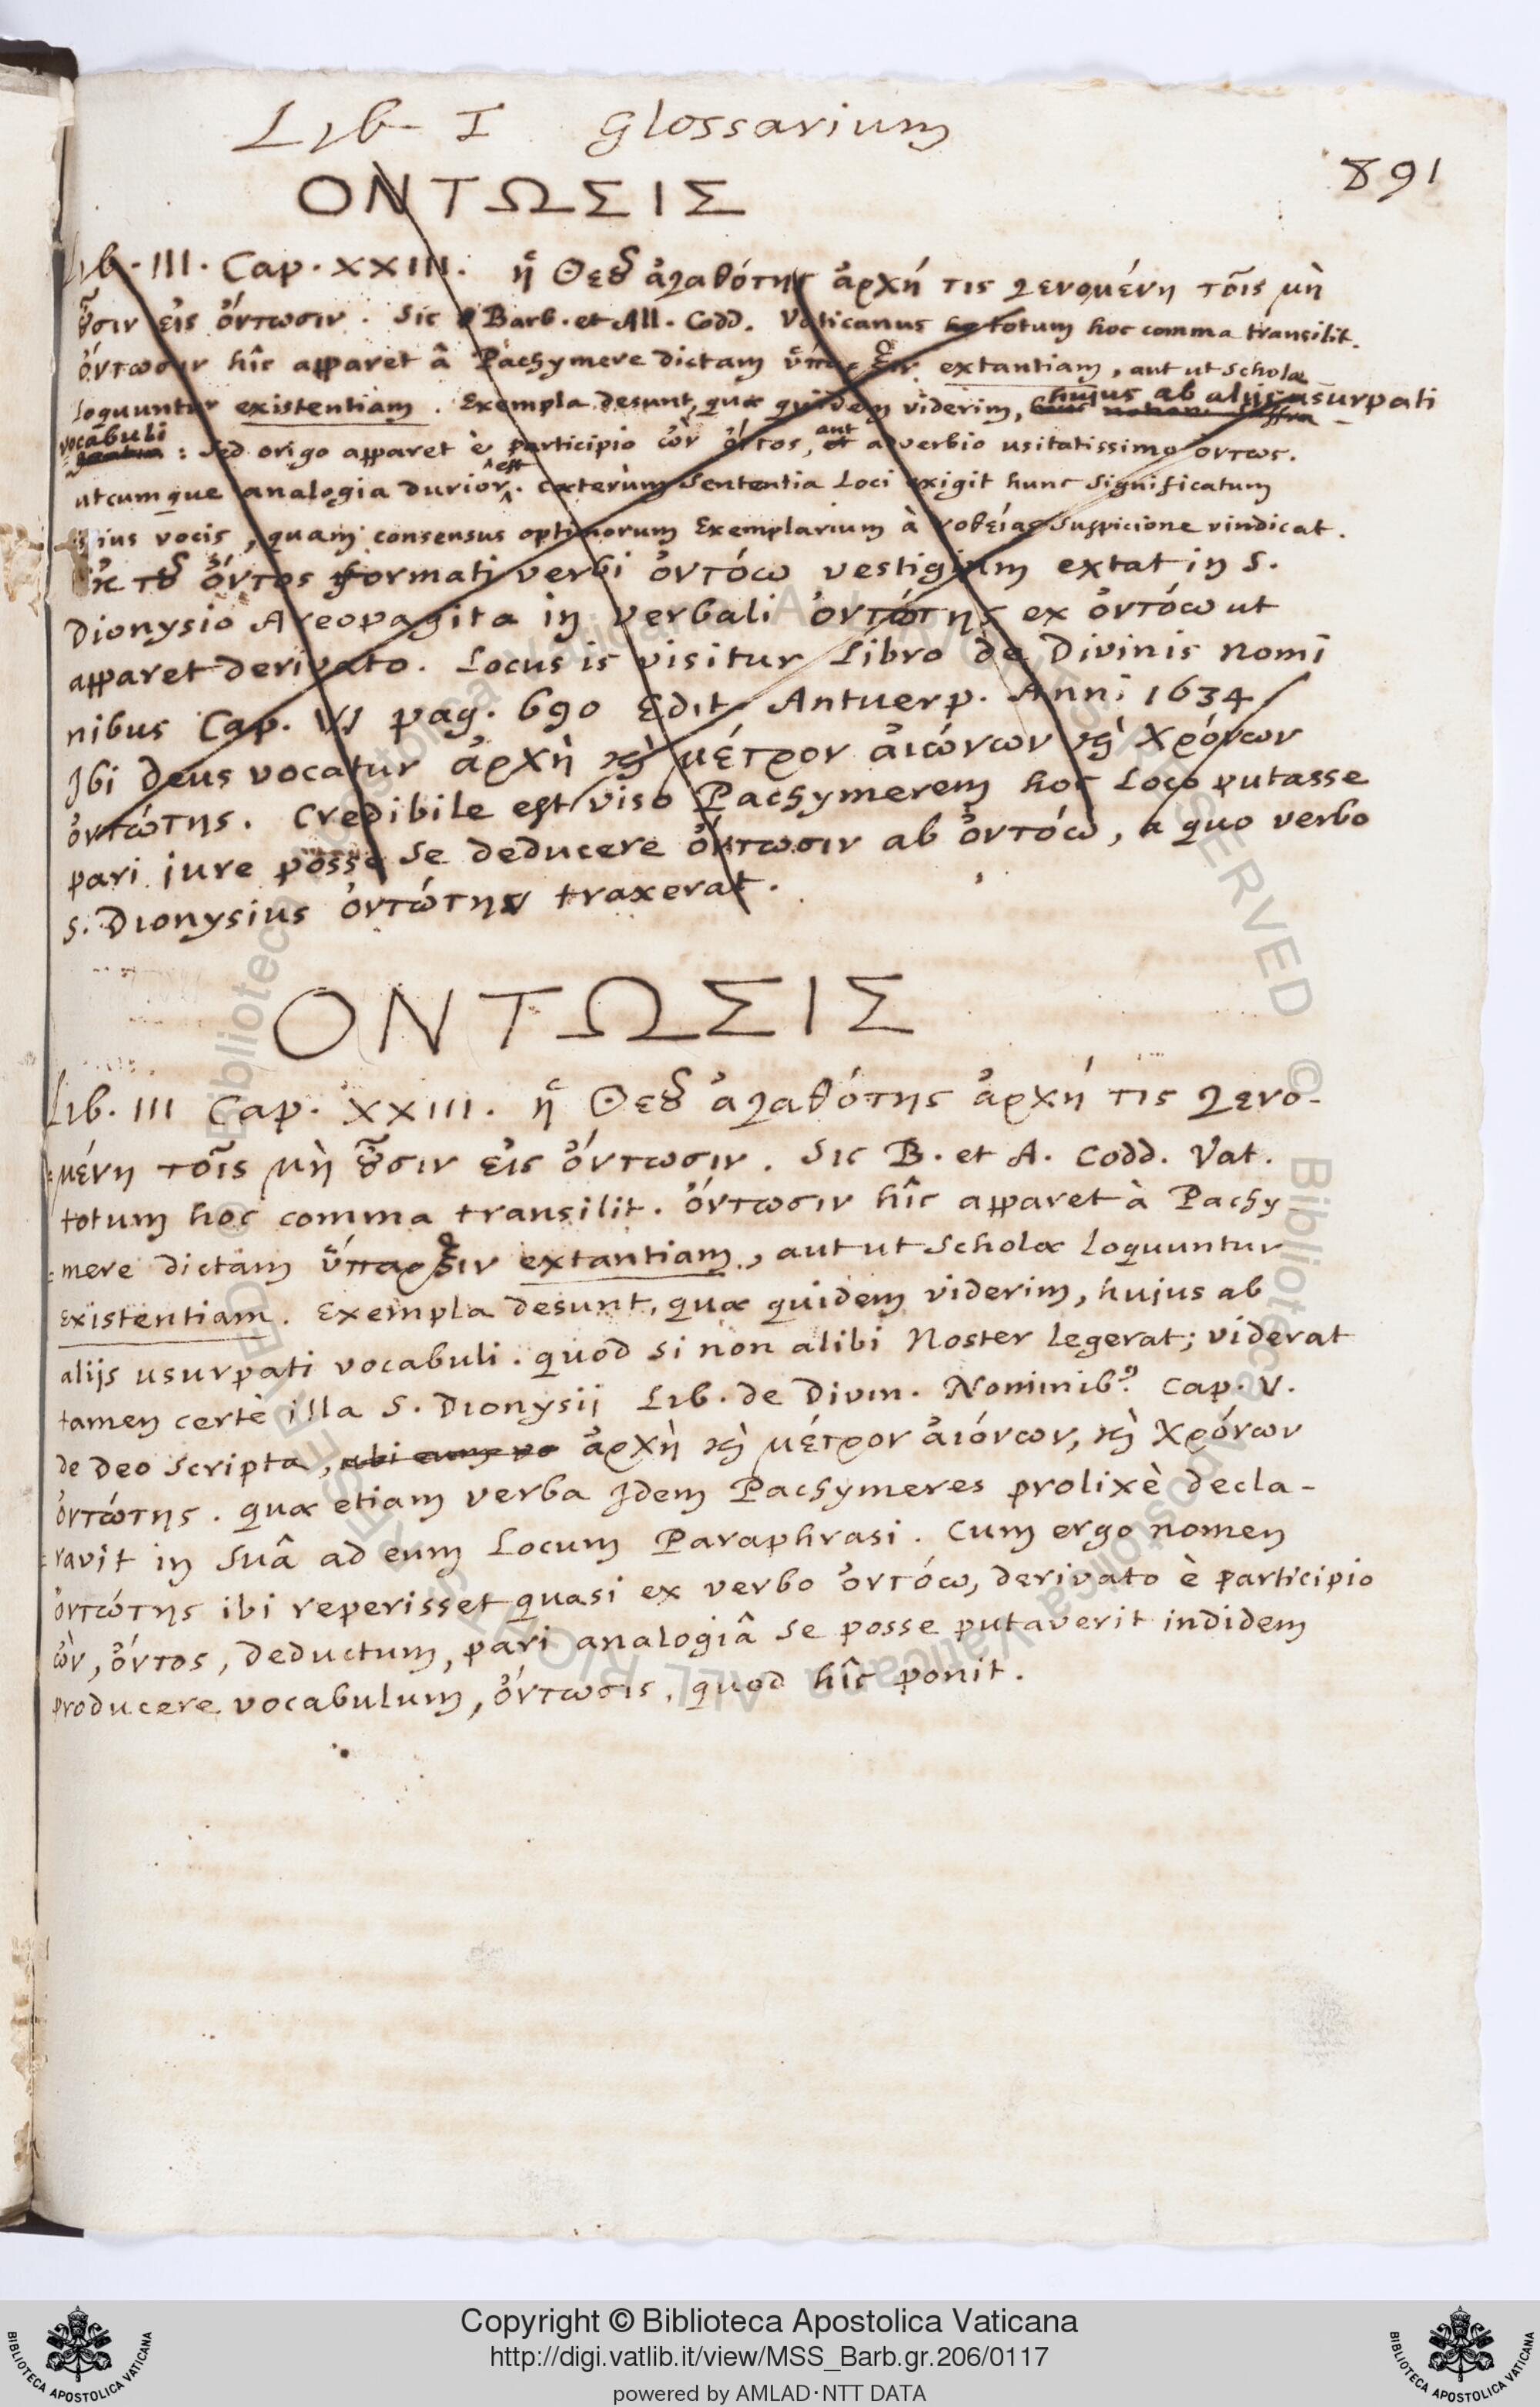 Lib. I glossarium
891
ΟΝΤΩΣΙΣ
Lib. III. Cap. XXIII. ἡ Θεοῦ ἀγαθότης ἀρχή τις γενομένη τοῖς μὴ
οὖσιν εἰς ὄντωσιν. Sic Barb. et All. Codd. Vaticanus totum hoc comma transilit.
ὄντωσιν hîc apparet â Pachymere dictam extantiam, aut ut Scholæ
loquuntur existentiam. Exempla desunt, quæ quidem viderim, hujus ab alijs usurpati
vocabuli: Sed origo apparet è participio ὢν ὄντος, aut adverbio usitatissimo ὄντως.
utcumque analogia durior est. cæterùm Sententia Loci exigit hunc Significatum
ius vocis, quam consensus optimorum Exemplarium à νοθείας Suspicione vindicat.
Ἐκ τοῦ ὄντος formati verbi ὀντόω vestigium extat in S.
Dionysio Areopagita in verbali ὀντώτης ex ὀντόω ut
apparet derivato. Locus is visitur Libro de Divinis nomi
nibus Cap. VI pag. 690 Edit. Antuerp. Anni 1634
Ibi Deus vocatur ἀρχὴ καὶ μέτρον αἰώνων καὶ χρόνων
ὀντώτης. Credibile est viso Pachymerem hoc Loco putasse
pari jure posse se deducere ὄντωσιν ab ὀντόω, a quo verbo
S. Dionysius ὀντώτης traxerat.
ΟΝΤΩΣΙΣ
Lib. III Cap. XXIII. ἡ Θεοῦ ἀγαθότης ἀρχή τις γενο-
μένη τοῖς μὴ οὖσιν εἰς ὄντωσιν. Sic B. et A. Codd. Vat.
totum hoc comma transilit. ὄντωσιν hîc apparet à Pachy
mere dictam ὕπαρξιν extantiam, aut ut Scholæ loquuntur
existentiam. Exempla desunt, quæ quidem viderim, hujus ab
alijs usurpati vocabuli. quod si non alibi Noster legerat; viderat
tamen certè illa S. Dionysij Lib. de Divin. Nominib9. Cap. V.
de Deo scripta, ἀρχὴ καὶ μέτρον αἰόνων, καὶ χρόνων
ὀντώτης. quæ etiam verba Idem Pachymeres prolixè decla-
ravit in Suâ ad eum Locum Paraphrasi. Cum ergo nomen
ὀντώτης ibi reperisset quasi ex verbo ὀντόω, derivato è participio
ὢν, ὄντος, deductum, pari analogiâ se posse putaverit indidem
producere vocabulum, ὄντωσις, quod hîc ponit.
Copyright © Biblioteca Apostolica Vaticana
http://digi.vatlib.it/view/MSS_Barb.gr.206/0117
powered by AMLAD·NTT DATA
BIBLIOTECA APOSTOLICA VATICANA
BIBLIOTECA APOSTOLICA VATICANA